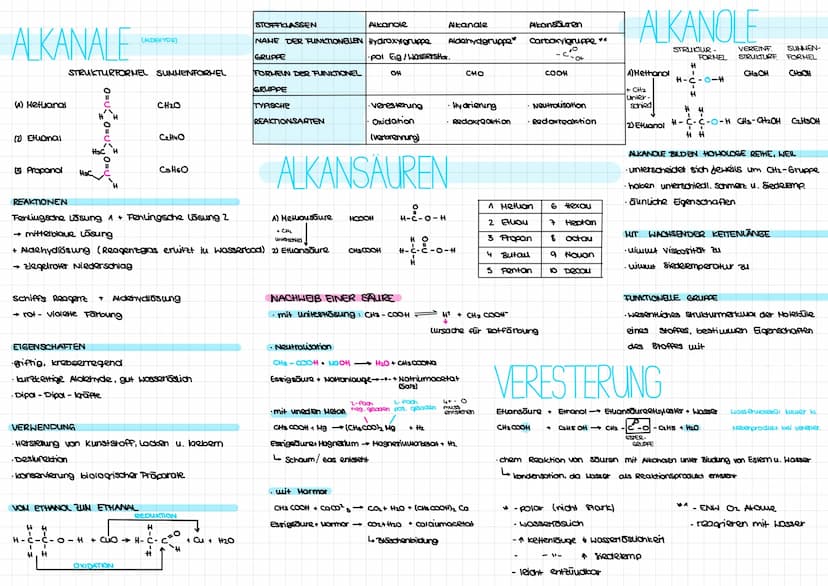 ALKANALE (ALDEHYDE)
STRUKTURFORMEL SUMMENFORMEL
(1) Methanal CH2O
(2) Ethanal C2H4O
(3) Propanal C3H6O
REAKTIONEN
Fehlingsche Lösung 1 + Fehlingsche Lösung 2
→ mittelblaue Lösung
+ Aldehydlösung (Reagenzglas erhitzt im Wasserbad)
→ ziegelroter Niederschlag
Schiffs Reagenz + Aldehydlösung
→ rot-violette Färbung
EIGENSCHAFTEN
·giftig, krebserregend
·kurzkettige Aldehyde, gut wasserlöslich
·Dipol-Dipol-Kräfte
VERWENDUNG
·Herstellung von Kunststoff, Lacken u. Klebern
·Desinfektion
·Konservierung biologischer Präparate
VOM ETHANOL ZUM ETHANAL
REDUKTION
+ CuO → + Cu + H2O
OXIDATION
STOFFKLASSEN Alkanole Alkanale Alkansäuren
NAME DER FUNKTIONELLEN GRUPPE Hydroxygruppe* Aldehydgruppe* Carboxylgruppe**
FORMELN DER FUNKTIONEL GRUPPE OH CHO COOH
TYPISCHE REAKTIONSARTEN
·Veresterung ·Hydrierung ·Neutralisation
·Oxidation ·Redoxreaktion ·Redoxreaktion
(Verbrennung)
ALKANSÄUREN
1) Methansäure HCOOH
2) Ethansäure CH3COOH
1 Methan 6 Hexan
2 Ethan 7 Heptan
3 Propan 8 Octan
4 Butan 9 Nonan
5 Pentan 10 Decan
NACHWEIß EINER SÄURE
·mit Unitestlösung: CH3-COOH ⇌ H+ + CH3COO-
Ursache für Rotfärbung
·Neutralisation
CH3-COOH + NaOH → H2O + CH3COONa
Essigsäure + Natronlauge → Natriumacetat
(Salz)
·mit unedlen Metall
CH3COOH + Mg → (CH3COO)2 Mg + H2
Essigsäure + Magnesium → Magnesiumacetat + H2
↳ Schaum/Gas entsteht
·mit Marmor
Essigsäure + Marmor → CO2 + H2O + Calciumacetat
↳ Bläschenbildung
ALKANOLE
STRUKTUR-FORMEL VEREINF. STRUKTURF. SUMMEN-FORMEL
1) Methanol CH3OH CH3OH
+ CH2 Unter-schied
2) Ethanol CH3-CH2OH C2H5OH
ALKANOLE BILDEN HOMOLOGE REIHE, WEIL
·unterscheidet sich jeweils um CH2-Gruppe
·haben unterschiedl. Schmelz u. Siedetemp.
·ähnliche Eigenschaften
MIT WACHSENDER KETTENLÄNGE
·nimmt Viskosität zu
·nimmt Siedetemperatur zu
FUNKTIONELLE GRUPPE
·wesentliches Strukturmerkmal der Moleküle
eines Stoffes, bestimmen Eigenschaften
des Stoffes mit
VERESTERUNG
Ethansäure + Ethanol → Ethansäureethylester + Wasser
CH3COOH + C2H5OH → CH3-C-O-C2H5 + H2O
ESTER-GRUPPE
·chem Reaktion von Säuren mit Alkoholen unter Bildung von Estern u. Wasser
↳ Kondensation, da Wasser als Reaktionsprodukt entsteht
* -polar (nicht stark)
-wasserlöslich
-↑ Kettenlänge ↓ Wasserlöslichkeit
- -"- ↑ Siedetemp
-leicht entzündbar
** -ENW O2 Atome
-reagieren mit Wasser